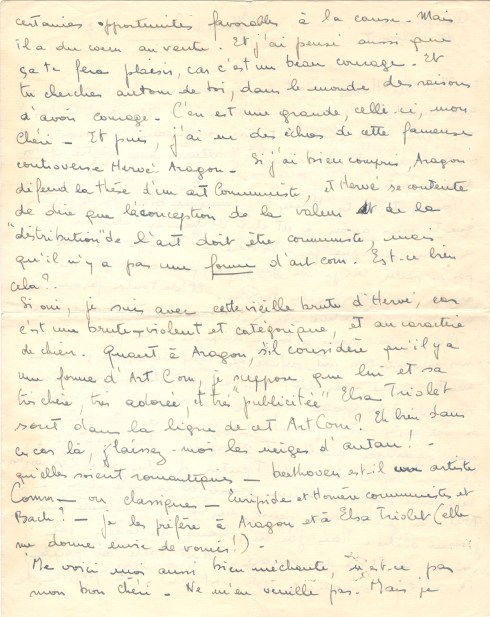 certaines opportunités favorables à la cause - Mais
il a du coeur au ventre. Et j'ai pensé aussi que
ça te fera plaisir, car c'est un beau courage. Et
tu cherches autour de toi, dans le monde des raisons
d'avoir courage - C'en est une grande, celle-ci, mon
Chéri - Et puis, j'ai eu des échos de cette fameuse
controverse Hervé-Aragon - Si j'ai bien compris, Aragon
défend la thèse d'un art Communiste, et Hervé se contente
de dire que la conception de la valeur et de la
"distribution" de l'art doit être communiste, mais
qu'il n'y a pas une forme d'art com. Est-ce bien
cela?
Si oui, je suis avec cette vieille brute d'Hervé, car
c'est une brute, violent et catégorique, et au caractère
de chien. Quant à Aragon, s'il considère qu'il y a
une forme d'Art Com, je suppose que lui et sa
très chère, très adorée, et très "publicitée" Elsa Triolet
sont dans la ligne de cet Art Com? Eh bien dans
ce cas là, laissez-moi les neiges d'autan! -
qu'elles soient romantiques - beethoven est-il un artiste
Comm - ou classiques - Euripide et Homère communistes et
Bach? - je les préfère à Aragon et à Elsa Triolet (elle
me donne envie de vomir!) -
Me voici moi aussi bien méchante, n'est-ce pas
mon bon chéri - Ne m'en veuille pas. Mais je